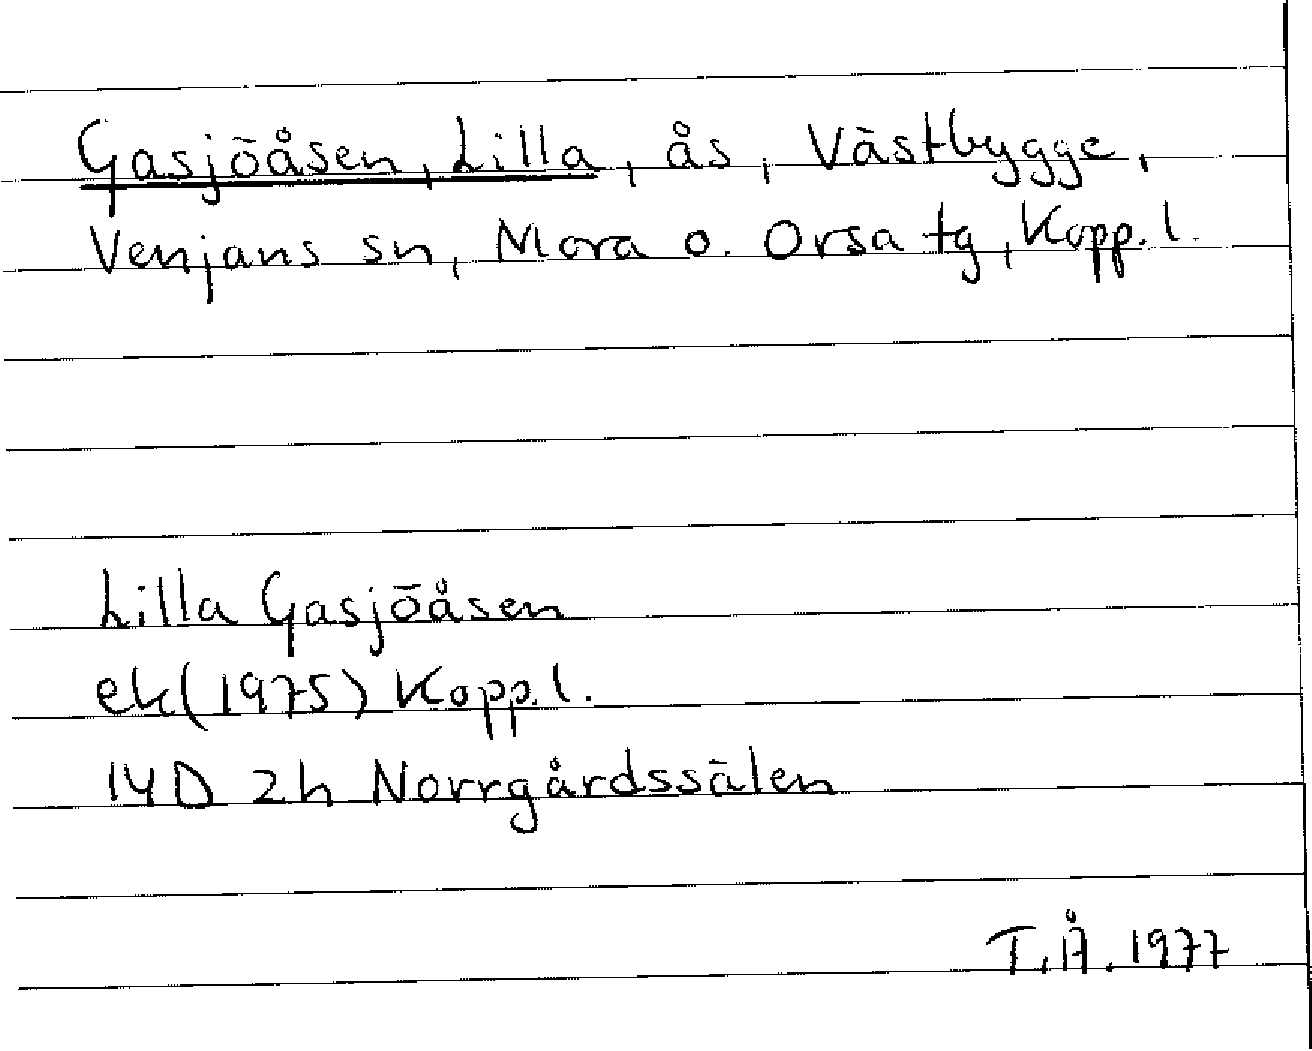 Gasjöåsen, Lilla, ås, Västbygge,
Venjans sn, Mora o. Orsa tg, Kopp. l.
Lilla Gasjöåsen
ek (1975) Kopp. l.
14D 2h Norrgårdssälen
T.Å. 1977